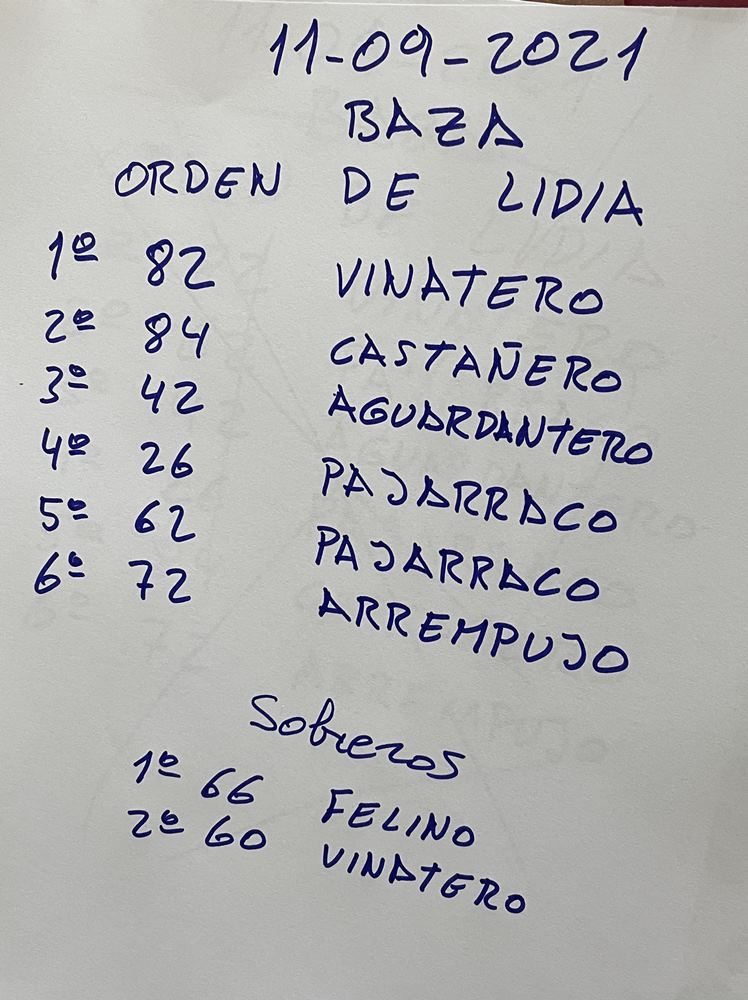 11-09-2021
BAZA
ORDEN DE LIDIA
1º 82 VINATERO
2º 84 CASTAÑERO
3º 42 AGUARDANTERO
4º 26 PAJARRACO
5º 62 PAJARRACO
6º 72 ARREMPUJO
Sobreros
1º 66 FELINO
2º 60 VINATERO